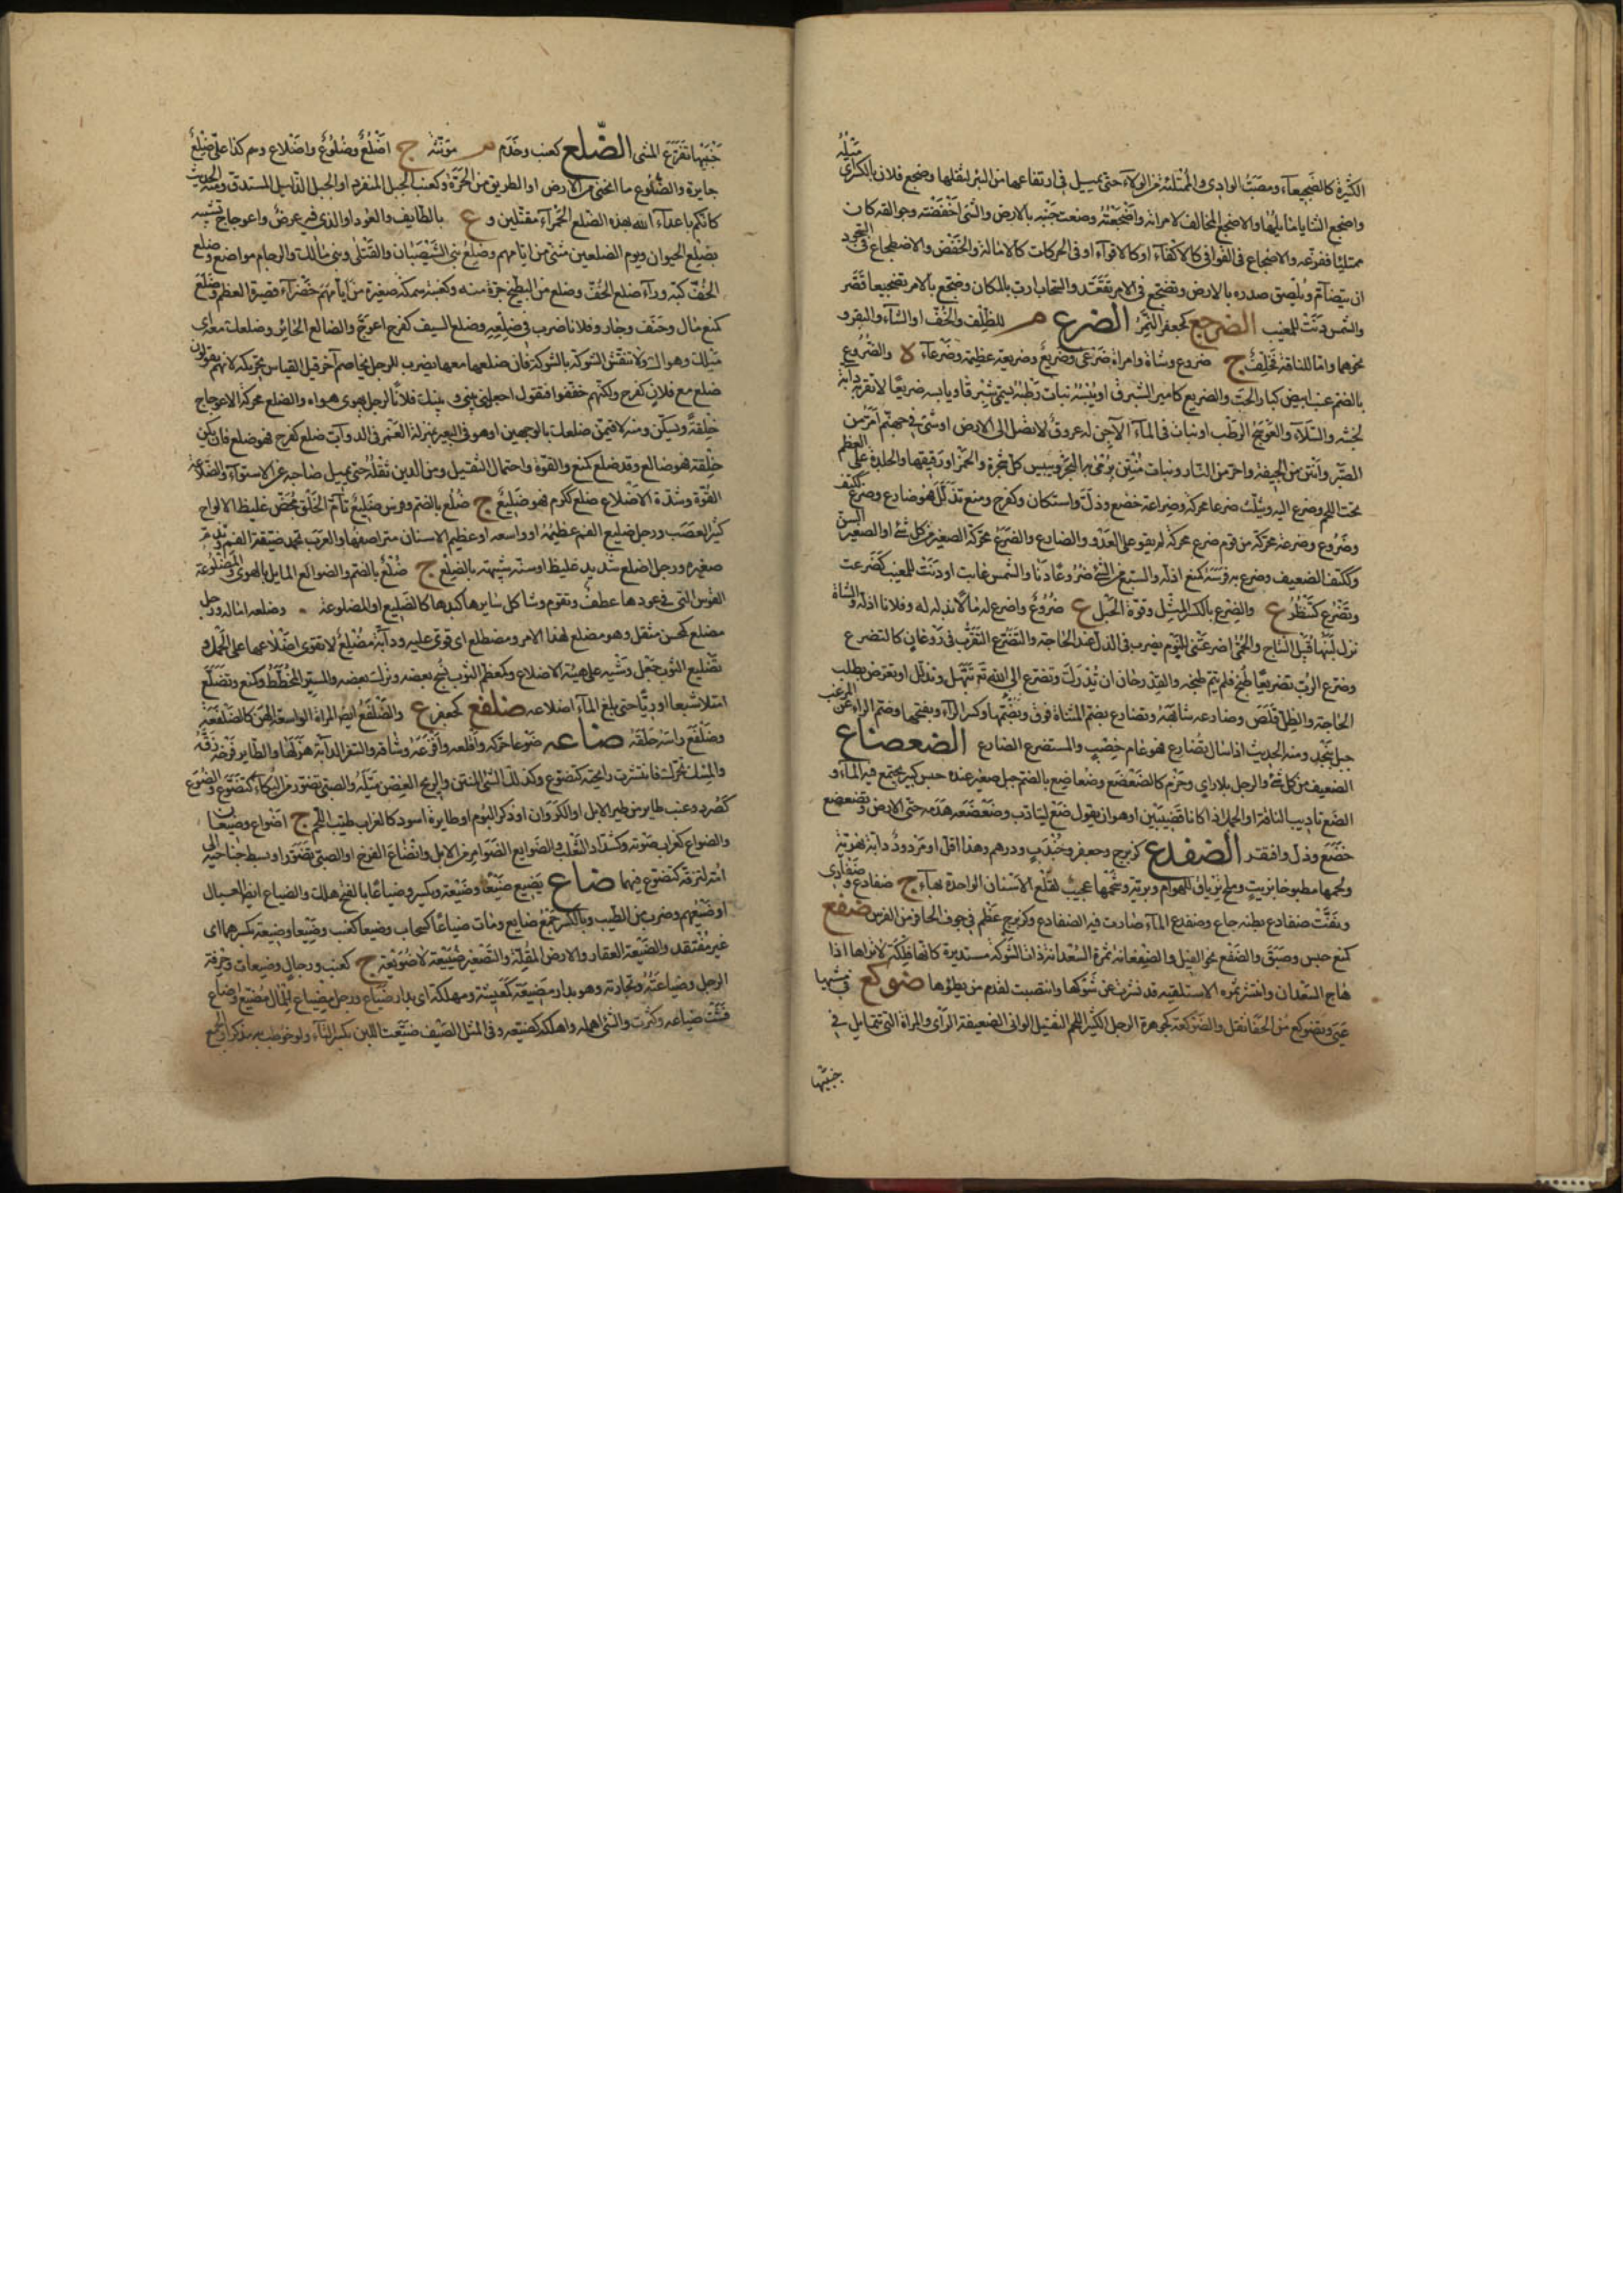 الكثيرة كالضجيعاء ومصب الوادي والممتلئة من الدلاء حتى تميل في ارتفاعها من البئر لثقلها وضجع فلان بالكسر
ميله
واضجع الثنايا مائلها والاضجع المخالف لامرأته واضجعته وضعت جنبه بالارض والشيء اخفضته وجوالقه كان
ممتليا ففرغه والاضجاع في القوافي كالاكفاء او كالاقواء وفي الحركات كالامالة والخفض والاضطجاع في السجود
ان يتضام ويلصق صدره بالارض وتضجع في الامر تقعد والسحاب ارب بالمكان وضجع بالامر تضجيعا قصر
والشمس دنت للمغيب الضرجع كجعفر النمر الضرع م للظلف والخف او الشاء والبقر و
نحوهما واما للناقة فخلف ج ضروع وشاة وامراة ضرعى وضريع وضريعة عظيمته وضرعاء لا والضروع
بالضم عنب ابيض كبار الحب والضريع كامير الشبرق او يبيسه نبات رطبه يسمى شبرقا ويابسه ضريعا لا تقربه دابة
لخبثه والسلاء والعوسج الرطب او نبات في الماء الآجن له عروق لا تصل الى الارض او شيء في جهنم امر من
الصبر وانتن من الجيفة واحر من النار ونبات منتن يرمى به البحر ويبيس كل شجرة والخمر او رقيقها والجلدة على العظم
تحت اللحم وضرع اليه ويثلث ضرعا محركة وضراعة خضع وذل واستكان وكفرح ومنع تذلل فهو ضارع وضرع ككتف
وضروع وضرعة محركة من قوم ضرع محركة لم يقو على العدو والضارع والضرع محركة الصغير من كل شيء او الصغير السن
وككتف الضعيف وضرع به فرسه كمنع اذله والسبع من الشيء ضروعا دنا والشمس غابت او دنت للمغيب كضرعت
وتضرع كتنظر ع والضرع بالكسر المثل وقوة الحبل ع ضروع واضرع له مالا بذله له وفلانا اذله والشاة
نزل لبنها قبيل النتاج والحمى اضرعتني للنوم يضرب في الذل عند الحاجة والتضرع التقرب في روغان كالتضرع
وضرع الرب تضريعا طبخ فلم يتم طبخه والقدر حان ان تدرك وتضرع الى الله تع تبهل وتذلل او تعرض بطلب
الحاجة والظل قلص وضارعه شابهه وتضارع بضم المثناة فوق وبضمها وكسر الراء وبفتحها وضم الراء عن الموعب
جبل بنجد ومنه الحديث اذا سال تضارع فهو عام خصيب والمستضرع الضارع الضعضاع
الضعيف من كل شيء والرجل بلا راي وحزم كالضعضع وضعاضع بالضم جبل صغير عنده حبس كبير يجتمع فيه الماء و
الضع تاديب الناقة او الجمل اذا كانا قضيبين او هو ان يقول ضع ليتادب وضعضعه هدمه حتى الارض وتضعضع
خضع وذل وافتقر الضفدع كزبرج وجعفر وجندب ودرهم وهذا اقل او مردود دابة نهرية
ولحمها مطبوخا بزيت وملح ترياق للهوام وبرية وشحمها عجيب لقلع الاسنان الواحدة بهاء ج ضفادع وضفادي
ونقت ضفادع بطنه جاع وضفدع الماء صارت فيه الضفادع وكزبرج عظم في جوف الحافر من الفرس ضفع
كمنع حبس وضبق والضفع نحو الفيل والضفعانة ثمرة السعدانة ذات الشوكة مستديرة كانها فلكة لا تراها اذا
هاج السعدان وانتثر ثمره الا مستلقيه قد كشرت عن شوكها وانتصبت لقدم من يطؤها ضوكع في مشيها
عيي وتضوكع من الحفا ثقل والضوكعة كجوهرة الرجل الكثير اللحم الثقيل الواني الضعيف الراى والمراة التي تتمايل في
جنبيها
جنبيها تفرغ المشي الضلع كعنب وجذم م مؤنثة ج اضلع وضلوع واضلاع وهم كذا على ضلع
جايرة والضلوع ما انحنى من الارض او الطريق من الحرة وكعنب الجبل المنفرد او الجبل الذليل المستدق ومنه الحديث
كانكم يا عداء الله بهذه الضلع الحمراء مقتلين و ع بالطايف والعود او الذي فيه عرض واعوجاج تشبيه
بضلع الحيوان ويوم الضلعين مثنى من ايامهم وضلع بني الشيصبان والقتلى وبني مالك والرجام مواضع وضلع
الخلف كية وراء ضلع الخلف وضلع من البطيخ حزة منه وكعنبة سمكة صغيرة من ايامهم خضراء قصيرة العظم وضلع
كمنع مال وجنف وجار وفلانا ضرب في ضلعه وضلع السيف كفرح اعوج والضالع الجائر وضلعك معه اى
ميلك وهواك ولا تنقش الشوكة بالشوكة فان ضلعها معها يضرب للرجل يخاصم آخر قيل القياس تحريكه لانهم يقولون
ضلع مع فلان كفرح ولكنهم خففوا فتقول اجعل بيني وبينك فلانا لرجل يهوى هواه والضلع محركة الاعوجاج
خلقة ويسكن ومنه لاقيمن ضلعك بالوجهين او هو في البعير بمنزلة الغمز في الدواب ضلع كفرح فهو ضلع فان لم يكن
خلقة فهو ضالع وقد ضلع كمنع والقوة واحتمال الثقيل ومن الدين ثقله حتى يميل صاحبه عن الاستواء والضلاعة
القوة وشدة الاضلاع ضلع ككرم فهو ضليع ج ضلع بالضم وفرس ضليع تام الخلق مجفر غليظ الالواح
كثير العصب ورجل ضليع الفم عظيمه او واسعه او عظيم الاسنان متراصفها والعرب تحمد ضيقة الفم وتذم
صغيره ورجل اضلع شديد غليظ او سنه شبيهة بالضلع ج ضلع بالضم والضوالع المايل بالهوى والمضلوعة
القوس التي في عودها عطف وتقوم وشاكل سايرها كبدها كالضليع او المضلوعة وضلعه اماله ورجل
مضلع كمحسن مثقل وهو مضلع لهذا الامر ومضطلع اى قوي عليه ودابة مضلع لا تقوى اضلاعها على الحمل و
تضليع الثوب جعل وشيه على هيئة الاضلاع وكمعظم الثوب نسج بعضه وترك بعضه والمسير المخطط وكمنع وتضلع
امتلا شبعا او ريا حتى بلغ الماء اضلاعه ضلفع كجعفر ع والضلفع ايضا المراة الواسعة الهن كالضلفعة
وضلفع راسه حلقه ضاعه ضوعا حركه واقلعه وافزعه وشاقه والسفر الدابة هزلها والطاير فرخه زقه
والمسك تحرك فانتشرت رايحته كتضوع وكذلك الشئ المنتن والريح الغصن ميله والصبي تضور من البكاء كتضوع والضوع
كصرد وعنب طاير من طير الليل او الكروان او ذكر البوم او طاير اسود كالغراب طيب اللحم ج اضواع وضيعان
والضواع كغراب صوته وكشداد الثعلب والضوايع الضوامر من الابل وانضاع الفرخ او الصبي تضور او بسط جناحيه الى
امه لتزقه كتضوع فيهما ضاع يضيع ضيعا وضيعة ويكسر وضياعا بالفتح هلك والضياع ايضا العيال
او ضيعهم وضرب من الطيب وبالكسر جمع ضايع ومات ضياعا كسحاب وضيعا كعنب وضيعا وضيعة بكسرهما اى
غير مفتقد والضيعة العقار والارض المغلة والتصغير ضييعة لا ضويعة ج كعنب ورجال وضيعات وحرفة
الرجل وصناعته وتجارته وهو بدار مضيعة كمعيشة ومهلكة اى بدار ضياع ورجل مضياع للمال مضيع واضاع
فشت ضياعه وكثرت والشئ اهمله واهلكه كضيعه وفي المثل الصيف ضيعت اللبن بكسر التاء ولو خوطب به مذكر او الجمع